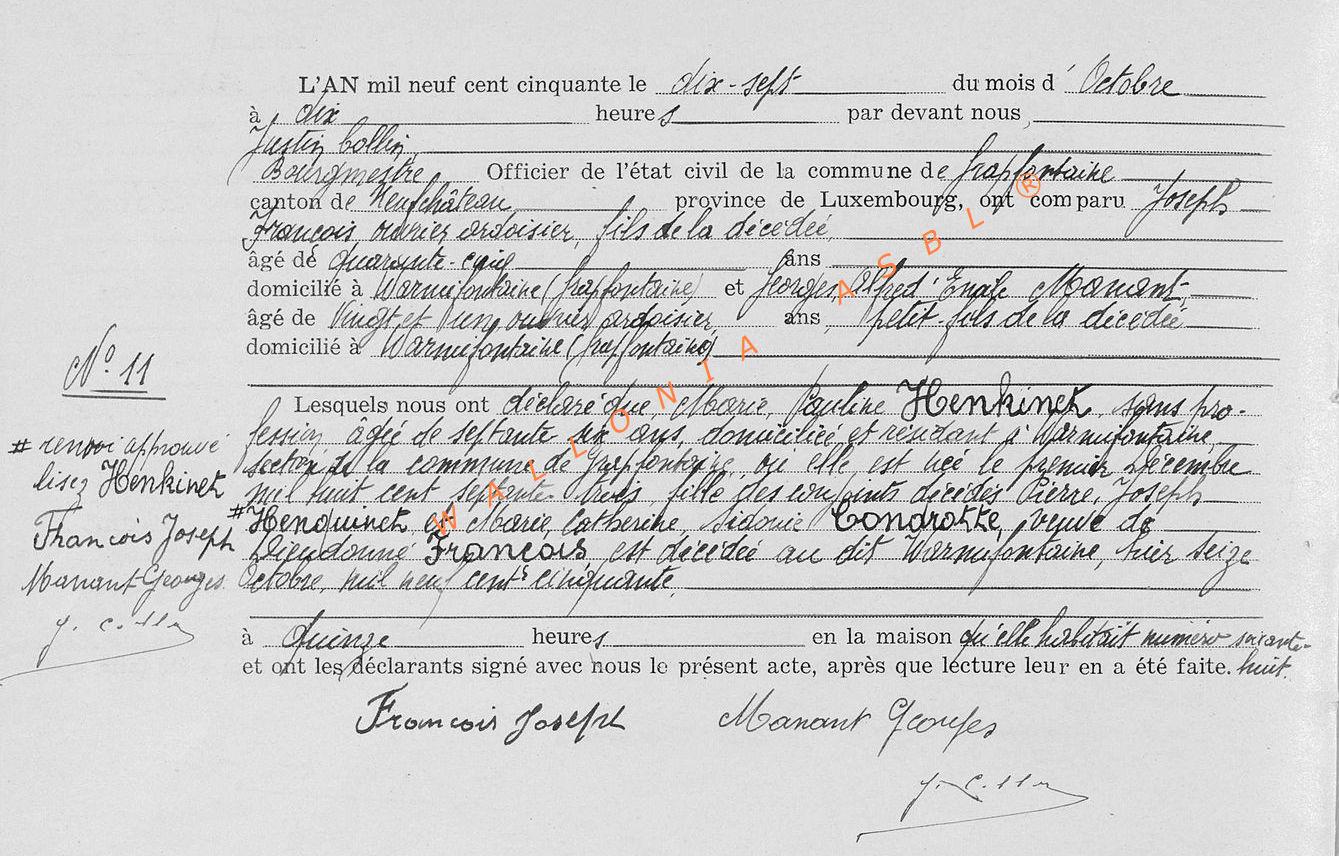 L'AN mil neuf cent cinquante le dix-sept du mois d' Octobre
à dix heures par devant nous,
Justin Collin,
Bourgmestre Officier de l'état civil de la commune de Grapfontaine
canton de Neufchâteau province de Luxembourg, ont comparu Joseph
François, ouvrier ardoisier, fils de la décédée,
âgé de quarante-cinq ans
domicilié à Warmifontaine (Grapfontaine) et Georges, Alfred, Emile Manant,
âgé de Vingt et un, ouvrier ardoisier, ans, petit-fils de la décédée
domicilié à Warmifontaine (Grapfontaine)
N° 11
Lesquels nous ont déclaré que, Marie, Pauline Henkinet, sans pro-
fession, âgée de septante six ans, domiciliée et résidant à Warmifontaine
section de la commune de Grapfontaine, où elle est née le premier Décembre
mil huit cent septante trois, fille des conjoints décédés Pierre, Joseph
# Henquinet et Marie, Catherine, Sidonie Condrotte, veuve de
Dieudonné François, est décédée au dit Warmifontaine, hier seize
Octobre, mil neuf cent cinquante,
# renvoi approuvé
lisez Henkinet
François Joseph
Manant Georges
J. Collin
à Quinze heures en la maison qu'elle habitait numéro soixante-
et ont les déclarants signé avec nous le présent acte, après que lecture leur en a été faite. huit.
François Joseph Manant Georges
J. Collin
WALLONIA ASBL ®